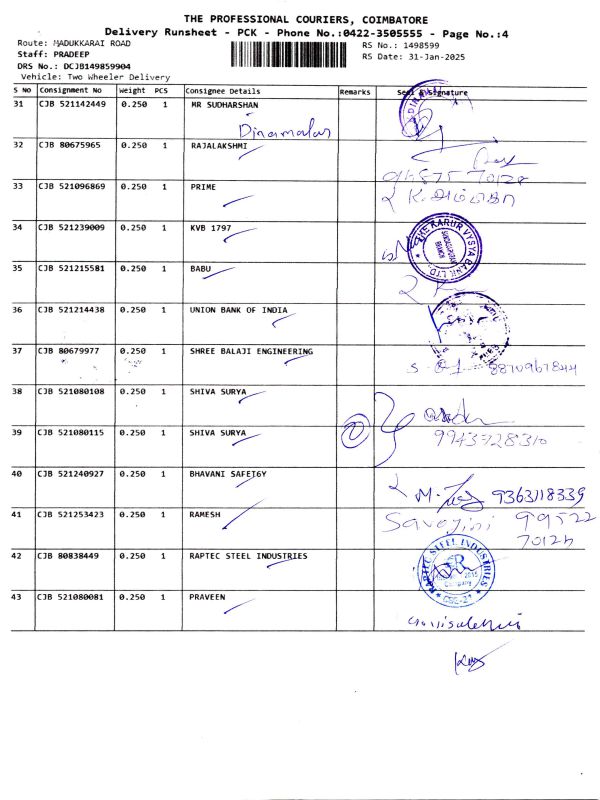 THE PROFESSIONAL COURIERS, COIMBATORE
Delivery Runsheet - PCK - Phone No.:0422-3505555 - Page No.:4
Route: MADUKKARAI ROAD
RS No.: 1498599
Staff: PRADEEP
RS Date: 31-Jan-2025
DRS No.: DCJB149859904
Vehicle: Two Wheeler Delivery
S No Consignment No Weight PCS Consignee Details Remarks Seal & Signature
31 CJB 521142449 0.250 1 MR SUDHARSHAN
Dinamalar
32 CJB 80675965 0.250 1 RAJALAKSHMI
33 CJB 521096869 0.250 1 PRIME
34 CJB 521239009 0.250 1 KVB 1797
THE KARUR VYSYA BANK LTD.
BRANCH
35 CJB 521215581 0.250 1 BABU
36 CJB 521214438 0.250 1 UNION BANK OF INDIA
37 CJB 80679977 0.250 1 SHREE BALAJI ENGINEERING
38 CJB 521080108 0.250 1 SHIVA SURYA
39 CJB 521080115 0.250 1 SHIVA SURYA
2
40 CJB 521240927 0.250 1 BHAVANI SAFEI6Y
9363118339
41 CJB 521253423 0.250 1 RAMESH
99522
70124
42 CJB 80838449 0.250 1 RAPTEC STEEL INDUSTRIES
RAPTEC STEEL INDUSTRIES
43 CJB 521080081 0.250 1 PRAVEEN